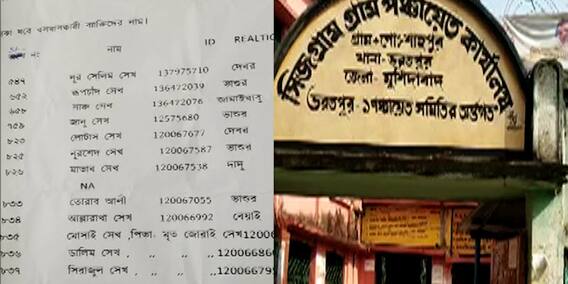 নাম ID REALTIO
৫৪৭ নুর সেলিম সেখ 137975710 দেবর
৬৫২ রূপচাঁদ সেখ 136472039 ভাশুর
৬৫৮ সারু সেখ 136472076 জামাইবাবু
৭৫৯ জানু সেখ 12575680 ভাশুর
৮২৩ লোটাস সেখ 120067677 দেবর
৮২৫ নুরশেদ সেখ 120067587 ভাশুর
৮২৬ মাতাব সেখ 120067538 দাদু
NA
৮৩৩ তোরাব আলী 120067055 ভাশুর
৮৩৪ আল্লারাখা সেখ 120066992 বেয়াই
৮৩৫ মোসাই সেখ ,পিতা- মৃত জোরাই সেখ1200
৮৩৬ ডালিম সেখ , ,, ,, ,,1200668
৮৩৭ সিরাজুল সেখ , ,, ,, ,,12006679
সিজগ্রাম গ্রাম পঞ্চায়েত কার্যালয়
গ্রাম+পোঃ-শাহপুর
থানা-ভরতপুর
জেলা-মুর্শিদাবাদ
ভরতপুর-১পঞ্চায়েত সমিতির অন্তর্গত